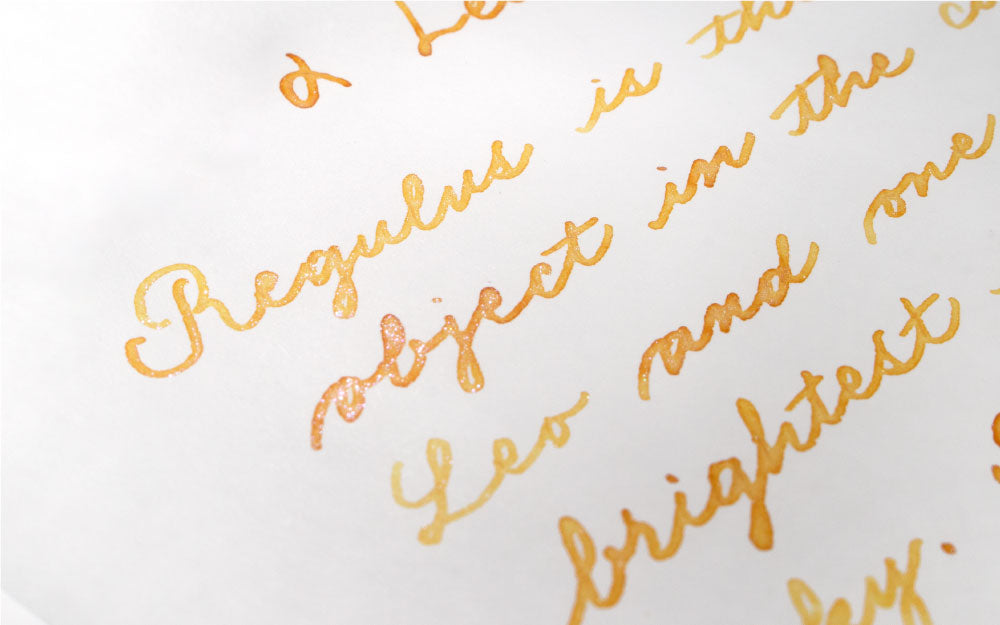 α Le
Regulus is the
object in the c
Leo and one
brightest
ky.